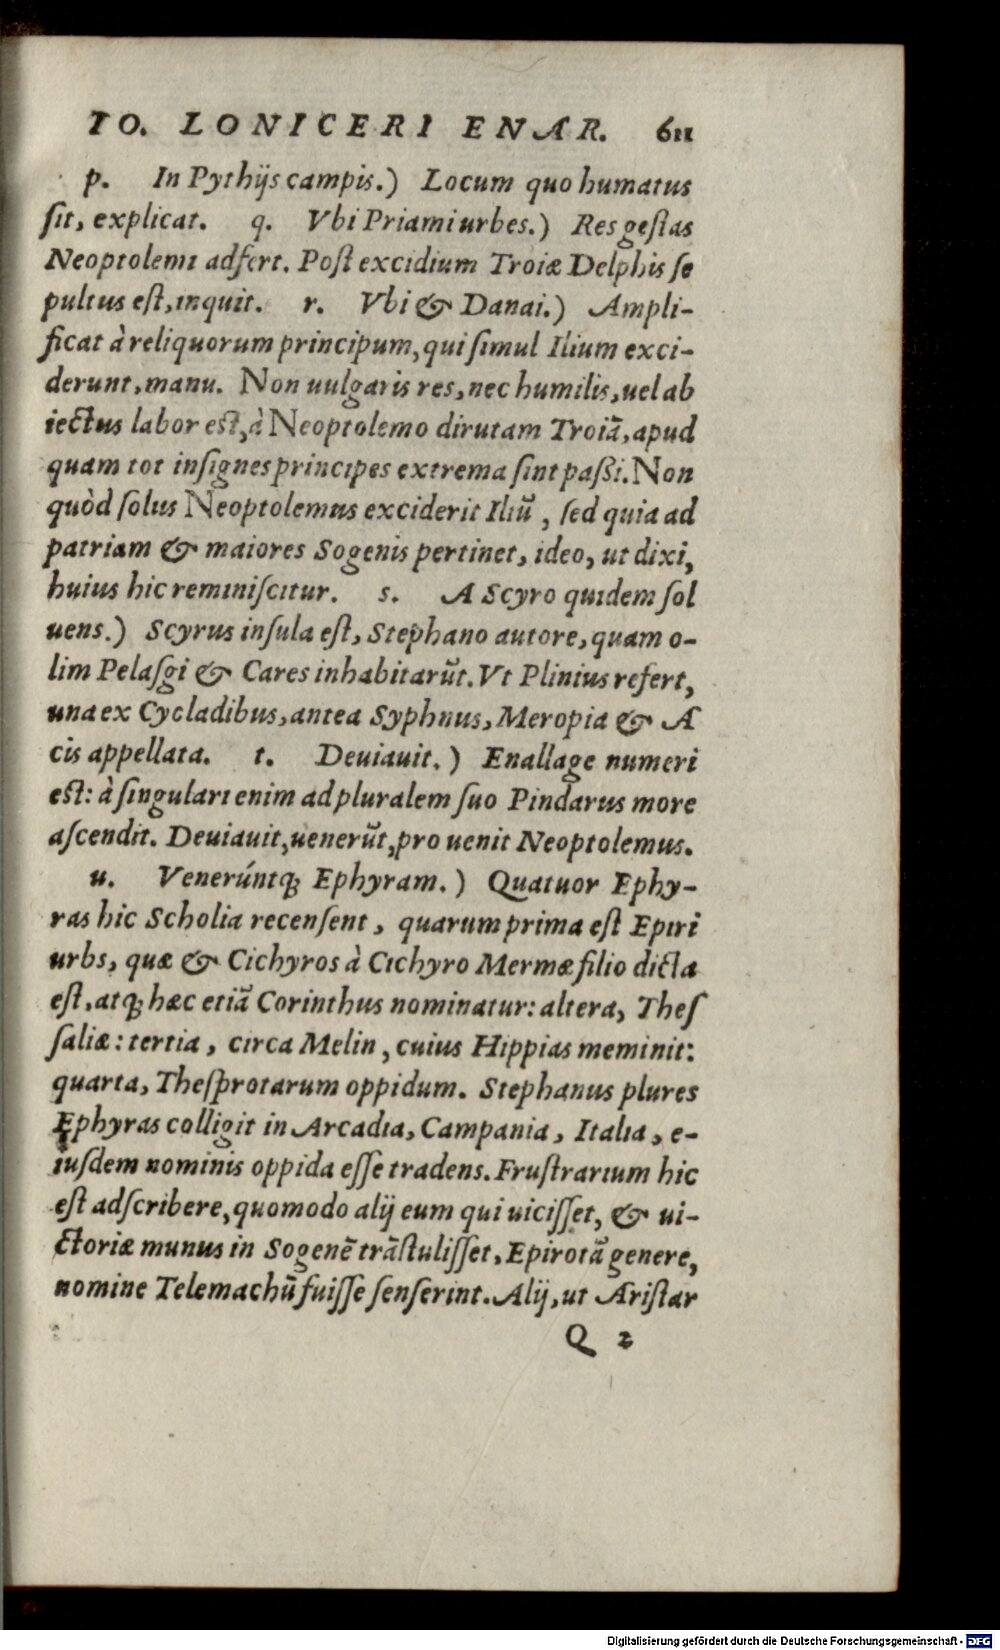 IO. LONICERI ENAR. 611
p. In Pythijs campis.) Locum quo humatus
ſit, explicat. q. Vbi Priami urbes.) Res geſtas
Neoptolemi adfert. Poſt excidium Troiæ Delphis ſe
pultus eſt, inquit. r. Vbi & Danai.) Ampli-
ficat à reliquorum principum, qui ſimul Ilium exci-
derunt, manu. Non uulgaris res, nec humilis, uel ab
iectus labor eſt, à Neoptolemo dirutam Troiā, apud
quam tot inſignes principes extrema ſint paßi. Non
quòd ſolus Neoptolemus exciderit Iliū, ſed quia ad
patriam & maiores Sogenis pertinet, ideo, ut dixi,
huius hic reminiſcitur. s. A Scyro quidem ſol
uens.) Scyrus inſula eſt, Stephano autore, quam o-
lim Pelaſgi & Cares inhabitarūt. Vt Plinius refert,
una ex Cycladibus, antea Syphnus, Meropia & A
cis appellata. t. Deuiauit.) Enallage numeri
eſt: à ſingulari enim ad pluralem ſuo Pindarus more
aſcendit. Deuiauit, uenerūt, pro uenit Neoptolemus.
u. Venerúntq́ Ephyram.) Quatuor Ephy-
ras hic Scholia recenſent, quarum prima eſt Epiri
urbs, quæ & Cichyros à Cichyro Mermæ filio dicta
eſt, atq; hæc etiā Corinthus nominatur: altera, Theſ
ſaliæ: tertia, circa Melin, cuius Hippias meminit:
quarta, Theſprotarum oppidum. Stephanus plures
Ephyras colligit in Arcadia, Campania, Italia, e-
iuſdem nominis oppida eſſe tradens. Fruſtrarium hic
eſt adſcribere, quomodo alij eum qui uiciſſet, & ui-
ctoriæ munus in Sogenē trāſtuliſſet, Epirotā genere,
nomine Telemachū fuiſſe ſenſerint. Alij, ut Ariſtar
Q 2
Digitalisierung gefördert durch die Deutsche Forschungsgemeinschaft - DFG